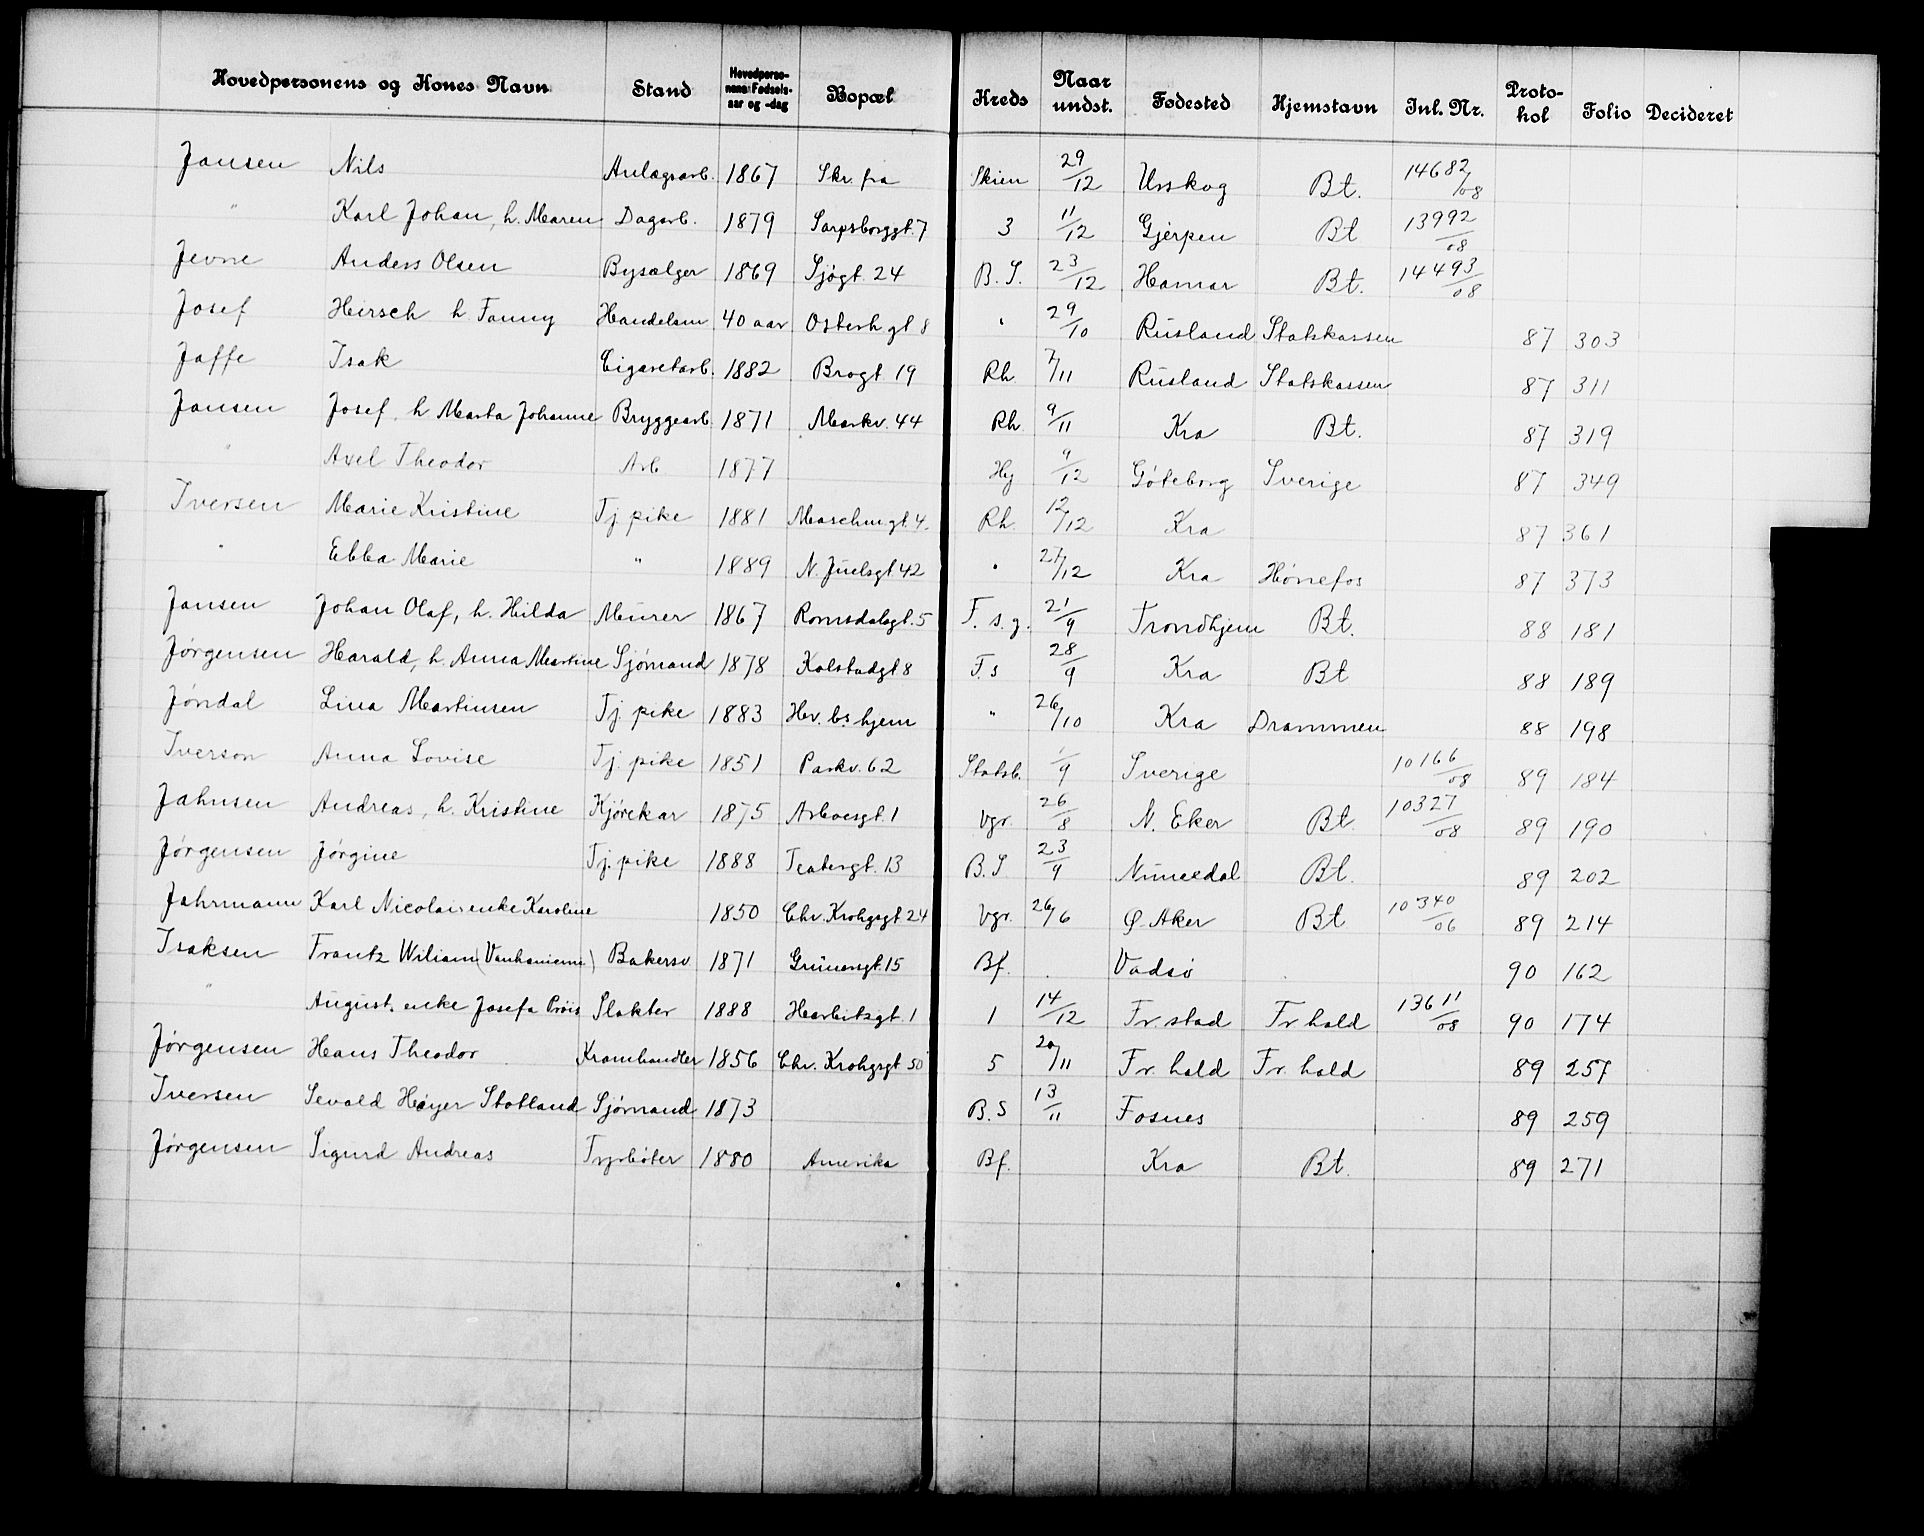 Hovedpersonens og Kones Navn Stand Hovedperso-nens Fødsels-aar og -dag Bopæl Kreds Naar undst. Fødested Hjemstavn Inl. Nr. Proto-kol Folio Decideret
Jansen Nils Anlægsarb. 1867 Skr. fra Skien 29/12 Urskog Bt. 14682/08
" Karl Johan, h. Maren Dagarb. 1879 Sarpsborggt. 7 3 11/12 Gjerpen Bt 13992/08
Jevne Anders Olsen Bysælger 1869 Sjøgt. 24 B. S. 23/12 Hamar Bt. 14493/08
Josef Hirsch h. Fanny Handelsm 40 aar Osterh.gt 8 " 29/10 Rusland Statskassen 87 303
Jaffe Isak Cigaretarb. 1882 Brogt 19 Rh 7/11 Rusland Statskassen 87 311
Jansen Josef, h Marta Johanne Bryggearb. 1871 Markv. 44 Rh. 9/11 Kra Bt. 87 319
" Axel Theodor Arb 1877 Hj 9/12 Göteborg Sverige 87 349
Iversen Marie Kristine Tj. pike 1881 Maschm.gt. 4. Rh. 12/12 Kra 87 361
" Ebba Marie " 1889 N. Juelsgt 42 " 27/12 Kra Hønefos 87 373
Jansen Johan Olaf, h. Hilda Murer 1867 Romsdalsgt. 5 F. s. g. 21/9 Trondhjem Bt. 88 181
Jørgensen Harald, h. Anna Martine Sjømand 1878 Kolstadgt 8 F. s 28/9 Kra Bt 88 189
Jøndal Lina Martinsen Tj. pike 1883 Hv. bs hjem " 26/10 Kra Drammen 88 198
Iverson Anna Lovise Tj. pike 1851 Parkv. 62 Statsb. 1/9 Sverige 10166/08 89 184
Jahnsen Andreas, h. Kristine Kjørekar 1875 Arboesgt. 1 Vgr. 26/8 N. Eker Bt. 10327/08 89 190
Jørgensen Jørgine Tj. pike 1888 Teatergt. 13 B. S 23/9 Numedal Bt. 89 202
Jahrmann Karl Nicolais enke Karoline 1850 Chr. Krohgsgt 24 Vgr. 26/6 Ø. Aker Bt 10340/06 89 214
Isaksen Frantz Wiliam (Vanhaniemi) Bakersv 1871 Grünersgt. 15 Bf. Vadsø 90 162
" August, enke Josefa Prøis Slakter 1888 Harbitzgt. 1 1 14/12 Fr. stad Fr. hald 13611/08 90 174
Jørgensen Hans Theodor Kramhandler 1856 Chr. Krohgsgt 50 5 20/11 Fr. hald Fr. hald 89 257
Iversen Sevald Høyer Stotland Sjømand 1873 B. S 13/11 Fosnes 89 259
Jørgensen Sigurd Andreas Tyrbøter 1880 Amerika Bf. Kra Bt. 89 271